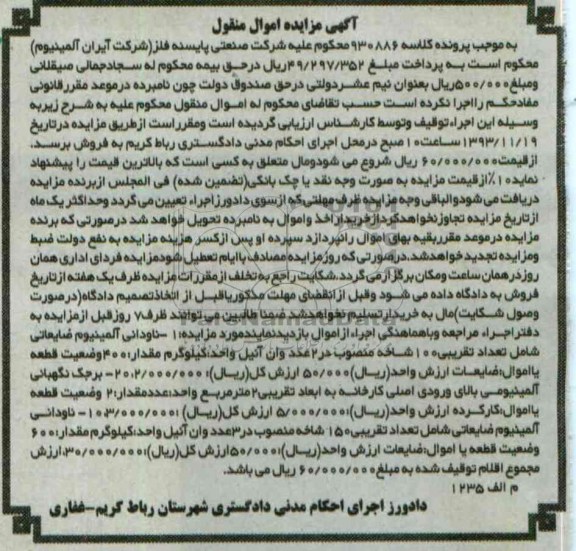 آگهی مزایده اموال منقول
به موجب پرونده کلاسه ۹۳۰۸۸۶ محکوم علیه شرکت صنعتی پایسنه فلز(شرکت آیران آلمینیوم)
محکوم است به پرداخت مبلغ ۴۹/۲۹۷/۳۵۲ریال درحق بیمه محکوم له سجادجمالی صیقلانی
ومبلغ۵۰۰/۰۰۰ریال بعنوان نیم عشردولتی درحق صندوق دولت چون نامبرده درموعد مقررقانونی
مفادحکم رااجرا نکرده است حسب تقاضای محکوم له اموال منقول محکوم علیه به شرح زیربه
وسیله این اجراءتوقیف وتوسط کارشناس ارزیابی گردیده است ومقرراست ازطریق مزایده درتاریخ
۱۳۹۳/۱۱/۱۹ساعت۱۰صبح درمحل اجرای احکام مدنی دادگستری رباط کریم به فروش برسد.
ازقیمت۶۰/۰۰۰/۰۰۰ ریال شروع می شودومال متعلق به کسی است که بالاترین قیمت را پیشنهاد
نماید۱۰٪ازقیمت مزایده به صورت وجه نقد یا چک بانکی(تضمین شده) فی المجلس ازبرنده مزایده
دریافت می شودوالباقی وجه مزایده ظرف مهلتی که ازسوی دادورزاجراء تعیین می گردد وحداکثر یک ماه
ازتاریخ مزایده تجاوزنخواهدکردازخریداراخذ واموال به نامبرده تحویل خواهد شد درصورتی که برنده
مزایده درموعد مقرربقیه بهای اموال رانپردازد سپرده او پس ازکسر هزینه مزایده به نفع دولت ضبط
ومزایده تجدیدخواهدشد.درصورتی که روزمزایده مصادف باایام تعطیل شودمزایده فردای اداری همان
روزدرهمان ساعت ومکان برگزارمی گردد.شکایت راجع به تخلف ازمقررات مزایده ظرف یک هفته ازتاریخ
فروش به دادگاه داده می شود وقبل ازانقضای مهلت مذکوریاقبل از اتخاذتصمیم دادگاه(درصورت
وصول شکایت)مال به خریدارتسلیم نخواهدشد ضمنا طالبین می توانند ظرف۷ روزقبل ازمزایده به
دفتراجراء مراجعه وباهماهنگی اجراءازاموال بازدیدنمایندموردمزایده:۱ -ناودانی آلمینیوم ضایعاتی
شامل تعداد تقریبی۱۰۰شاخه منصوب در۲عدد وان آنیل واحد:کیلوگرم مقدار:۴۰۰وضعیت قطعه
یااموال:ضایعات ارزش واحد(ریال):۵۰/۰۰۰ ارزش کل(ریال):۲۰/۰۰۰/۰۰۰ ۲- برجک نگهبانی
آلمینیومی بالای ورودی اصلی کارخانه به ابعاد تقریبی۲مترمربع واحد:عددمقدار:۲ وضعیت قطعه
یااموال:کارکرده ارزش واحد(ریال):۵/۰۰۰/۰۰۰ ارزش کل(ریال) :۱۰/۰۰۰/۰۰۰ ۳- ناودانی
آلمینیوم ضایعاتی شامل تعداد تقریبی۱۵۰شاخه منصوب در۳عدد وان آنیل واحد:کیلوگرم مقدار:۶۰۰
وضعیت قطعه یا اموال:ضایعات ارزش واحد(ریال):۵۰/۰۰۰ارزش کل(ریال):۳۰/۰۰۰/۰۰۰.ارزش
مجموع اقلام توقیف شده به مبلغ۶۰/۰۰۰/۰۰۰ ریال می باشد.
م الف ۱۲۳۵
دادورز اجرای احکام مدنی دادگستری شهرستان رباط کریم-غفاری